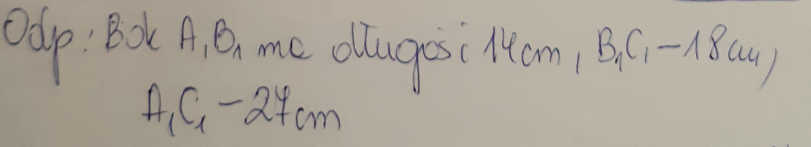 Odp: Bok A₁B₁ ma długość 14cm, B₁C₁ - 18cm,
A₁C₁ - 27cm